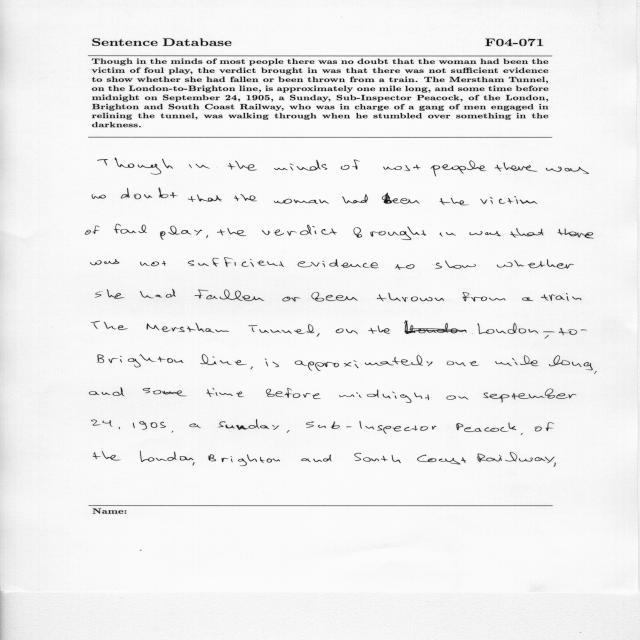 Sentence Database F04-071
Though in the minds of most people there was no doubt that the woman had been the
victim of foul play, the verdict brought in was that there was not sufficient evidence
to show whether she had fallen or been thrown from a train. The Merstham Tunnel,
on the London-to-Brighton line, is approximately one mile long, and some time before
midnight on September 24, 1905, a Sunday, Sub-Inspector Peacock, of the London,
Brighton and South Coast Railway, who was in charge of a gang of men engaged in
relining the tunnel, was walking through when he stumbled over something in the
darkness.
Though in the minds of most people there was
no doubt that the woman had been the victim
of foul play, the verdict brought in was that there
was not sufficient evidence to show whether
she had fallen or been thrown from a train
The Merstham Tunnel, on the London London-to-
Brighton line, is approximately one mile long,
and some time before midnight on september
24, 1905, a Sunday, Sub-Inspector Peacock, of
the London, Brighton and South Coast Railway,
Name: